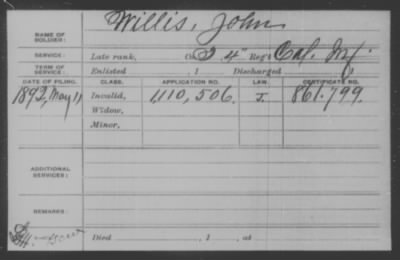 NAME OF SOLDIER: Willis, John
SERVICE: Late rank, Co. 4" Reg't Cal. Inf.
TERM OF SERVICE: Enlisted , 1 Discharged , 1
DATE OF FILING. CLASS. APPLICATION NO. LAW. CERTIFICATE NO.
1892, May 11 Invalid, 1,110,506. J. 861.799.
Widow,
Minor,
ADDITIONAL SERVICES:
REMARKS:
Died , 1 , at